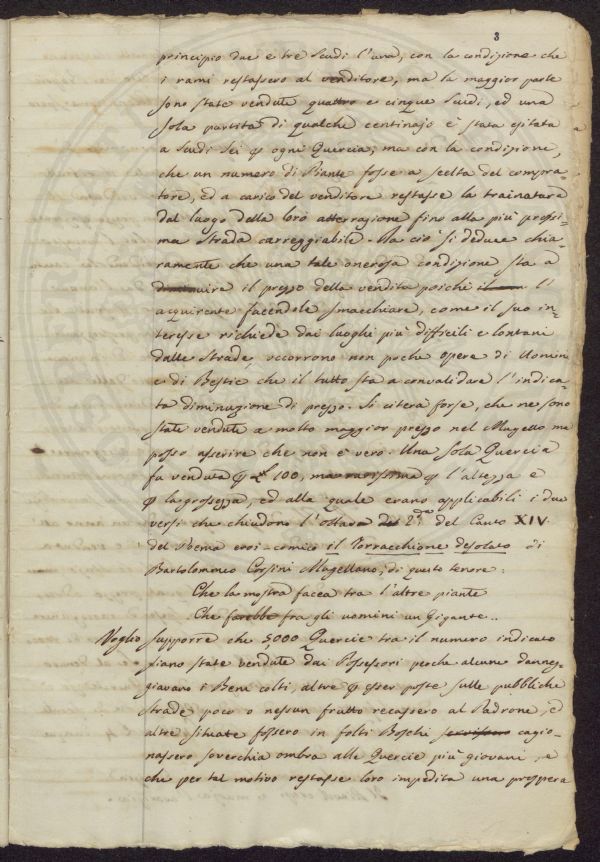 3
principio due e tre Scudi l'una, con la condizione che
i rami restassero al venditore, ma la maggior parte
sono state vendute quattro e cinque Scudi, ed una
sola partita di qualche centinajo è stata esitata
a Scudi Sei ogni Quercia; ma con la condizione,
che un numero di Piante fosse a scelta del compra-
tore, ed a carico del venditore restasse la trainatura
dal luogo della loro atterrazione fino alla più prossi-
ma Strada carreggiabile. Da ciò si deduce chia-
ramente che una tale onerosa condizione sta a
diminuire il prezzo della vendita poiché l'
acquirente facendole smacchiare, come il suo in-
teresse richiede dai luoghi più difficili e lontani
dalle Strade, occorrono non poche opere di Uomini
e di Bestie che il tutto sta a convalidare l'indica-
ta diminuzione di prezzo. Si citerà forse, che ne sono
state vendute a molto maggior prezzo nel Mugello ma
posso asserire che non è vero. Una Sola Quercia
fu venduta 100, ma rarissima l'altezza e
la grossezza, ed alla quale erano applicabili i due
versi che chiudono l'ottava del Canto XIV.
del Poema eroi-comico il Torracchione desolato di
Bartolommeo Corsini Mugellano, di questo tenore:
Che la mostra facea tra l'altre piante
Che farebbe fra gli uomini un Gigante..
Voglio supporre che 5,000 Quercie tra il numero indicato
siano state vendute dai Possessori perche alcune danneg-
giavano i Beni colti, altre esser poste sulle pubbliche
strade poco o nessun frutto recassero al Padrone, ed
altre situate fossero in folti Boschi cagio-
nassero soverchia ombra alle Quercie più giovani, e
che per tal motivo restasse loro impedita una prospera